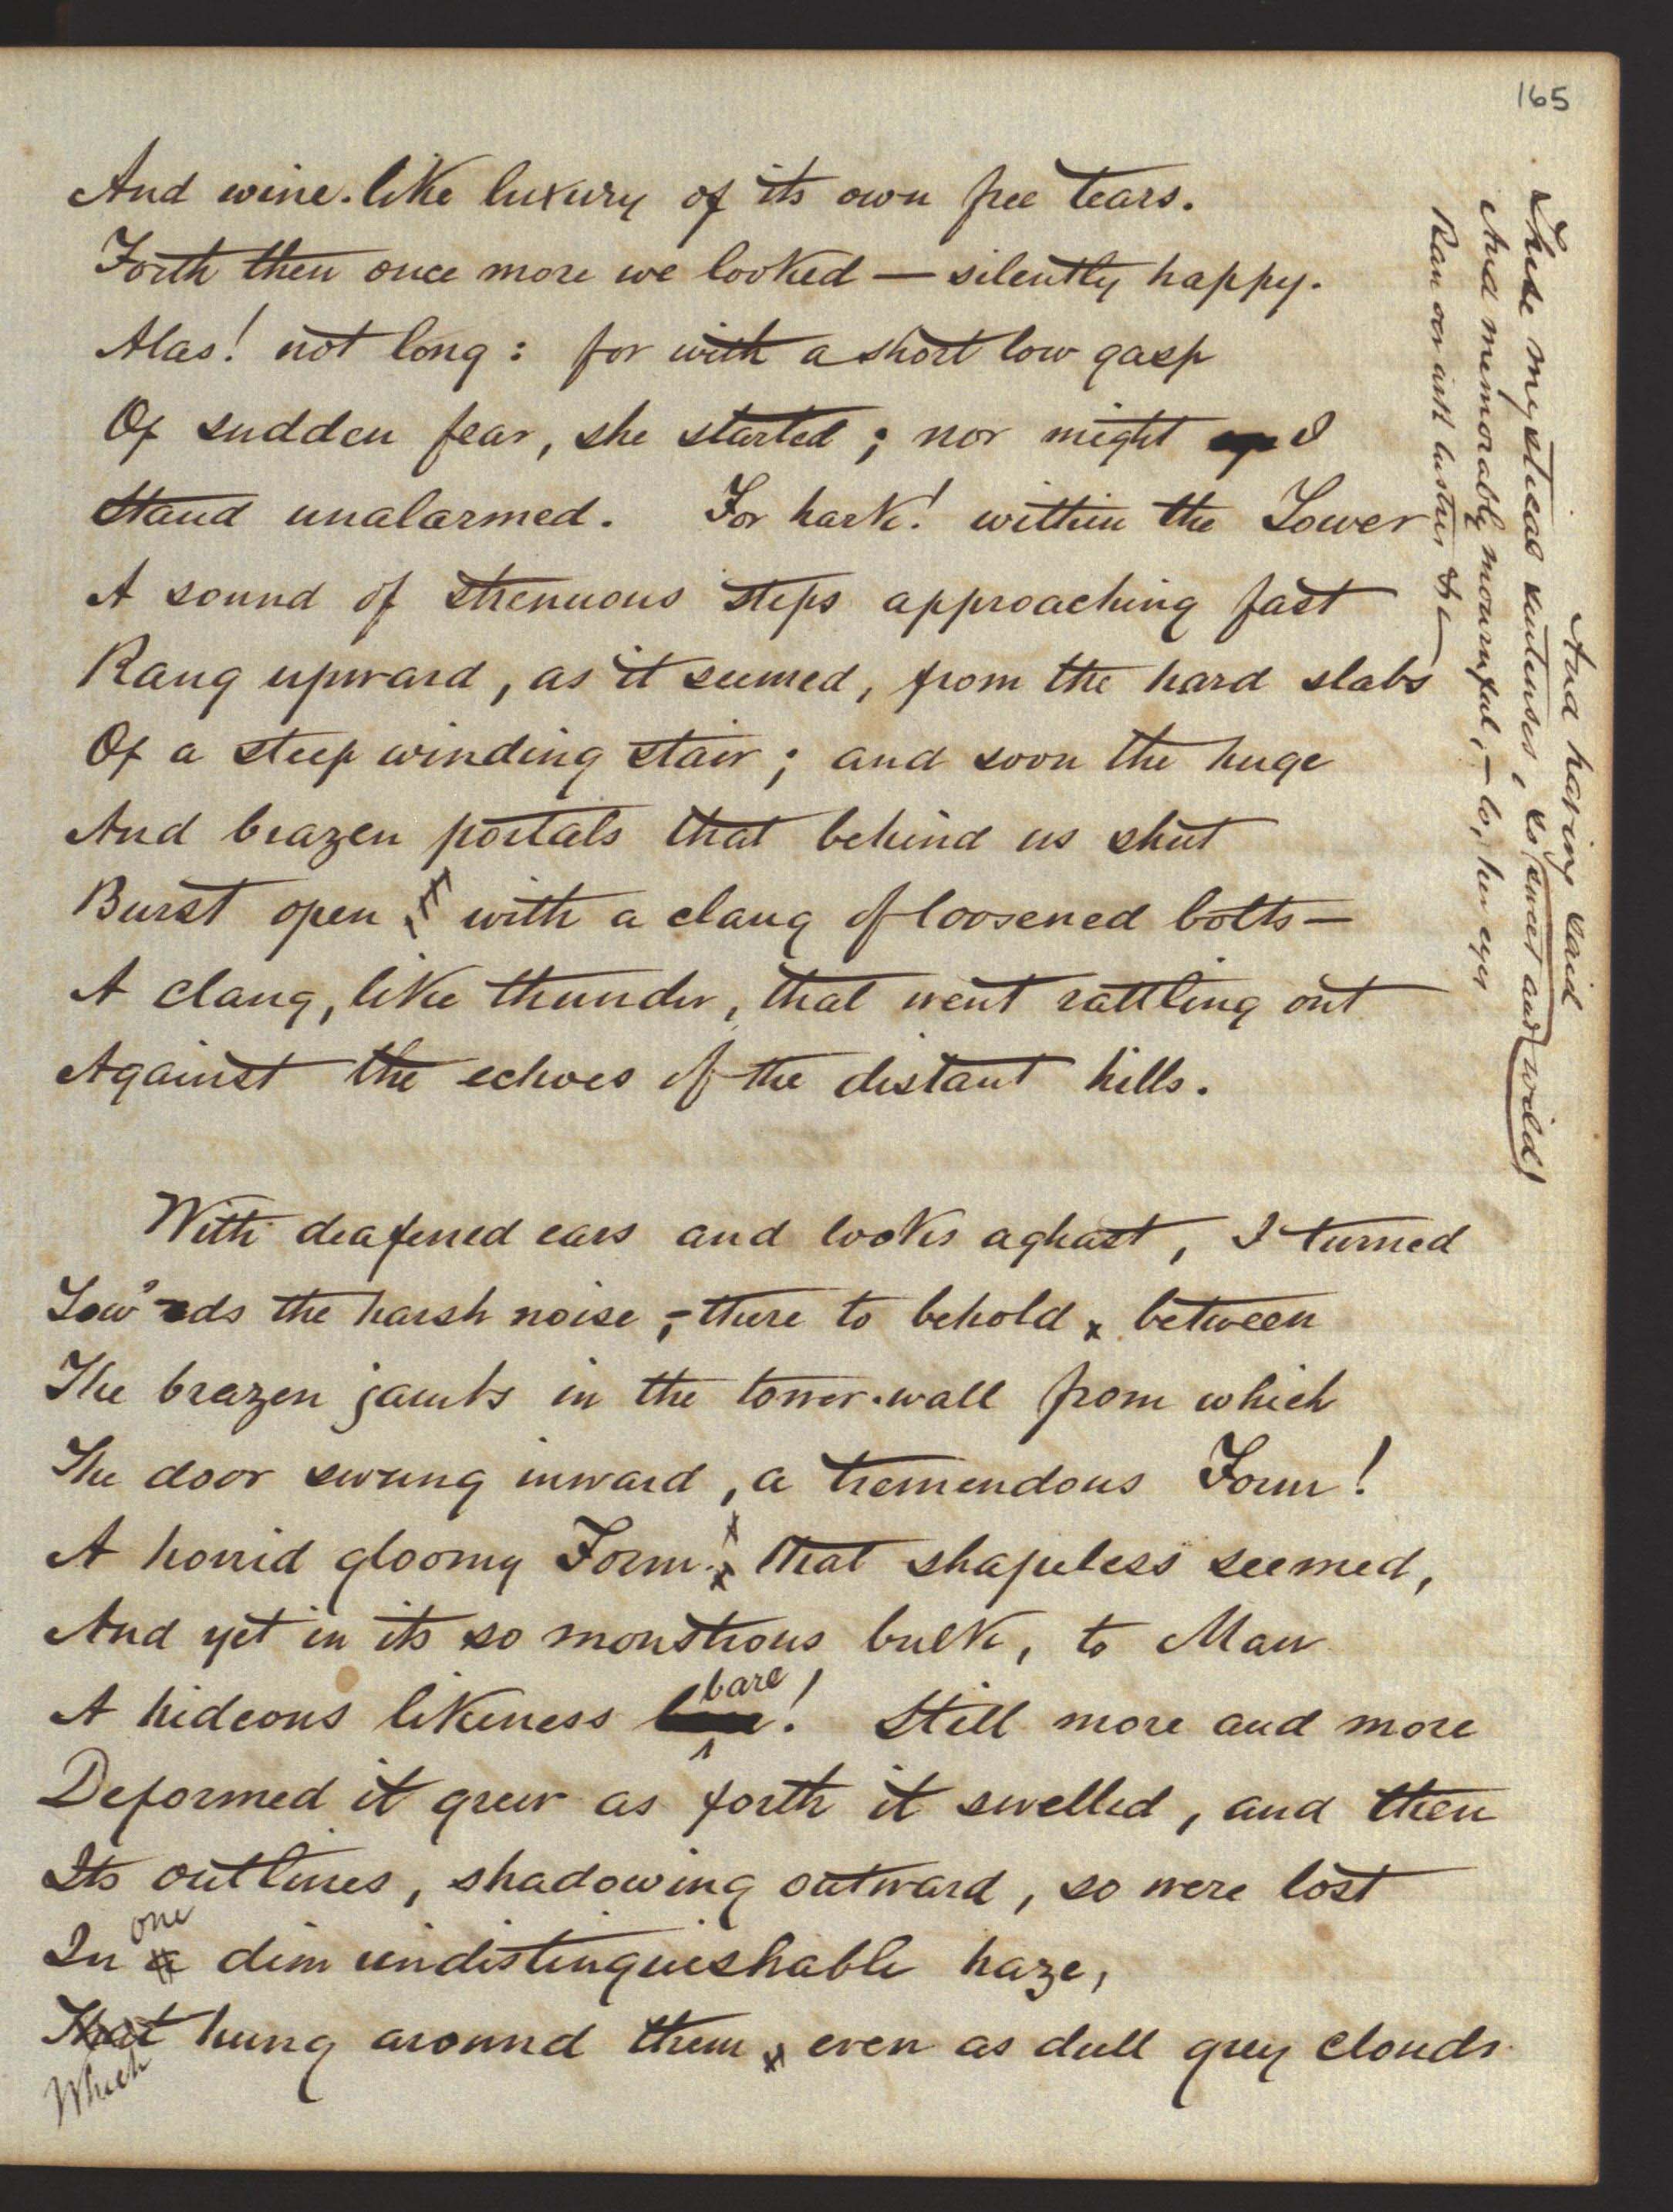 165
And wine-like luxury of its own free tears.
Forth then once more we looked — silently happy.
Alas! not long: for with a short low gasp
Of sudden fear, she started; nor might I
Stand unalarmed. For hark! within the Tower
A sound of strenuous steps approaching fast
Rang upward, as it seemed, from the hard slabs
Of a steep winding stair; and soon the huge
And brazen portals that behind us shut
Burst open, with a clang of loosened bolts—
A clang, like thunder, that went rattling out
Against the echoes of the distant hills.
With deafened ears and looks aghast, I turned
Tow'rds the harsh noise,—there to behold between
The brazen jambs in the tower-wall from which
The door swung inward, a tremendous Form!
A horrid gloomy Form that shapeless seemed,
And yet in its so monstrous bulk, to Man
bare
A hideous likeness ! Still more and more
Deformed it grew as forth it swelled, and then
Its outlines, shadowing outward, so were lost
one
In a dim undistinguishable haze,
That hung around them, even as dull grey clouds
Which
And having said
These mystical sentenses, so (sweet and wild)
And memorably mournful,—lo, her eyes
Ran oer with lustres &c—